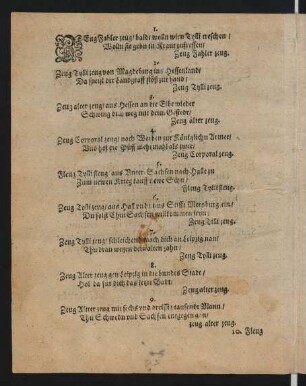 1.
ZEug Fahler zeug / baldt wölln wirn Tylli treschen /
Wölln sie geben Kraut zufressen /
Zeug Fahler zeug.
2.
Zeug Tylli zeug von Magdeburg ins Hessenlandt /
Da speist der Landgraff stöß zur handt /
Zeug Tylli zeug.
3.
Zeug alter zeug / aus Hessen an die Elbe wieder
Schwung dich weg mit dem Gefieder /
Zeug alter zeug.
4.
Zeug Corporal zeug / nach Werben zur Königlichn Armee /
Und hol die Pfüff mehr mahl als zwee /
Zeug Corporal zeug.
5.
Fleug Tylli fleug / aus Unter-Sachsen nach Halle zu
Zum newen Krieg kauff newe Schu /
Fleug Tylli fleug.
6.
Zeug Tylli zeug / aus Hall und aus Stifft Merßburg ein /
Du solst Chur Sachsen willkommen seyn /
Zeug Tylli zeug.
7.
Zeug Tylli zeug / schleich dich nach Leipzig nan /
Zeug Tylli zeug.
8.
Zeug Alter zeug gen Leipzig in die Stadt /
Hol da für dich das letzte Badt /
Zeug alter zeug.
9.
Zeug Alter zeug mit sechs und dreissig tausendt Mann /
Thu Schwedn und Sachsen entgegen gan /
zeug alter zeug.
10. Fleug